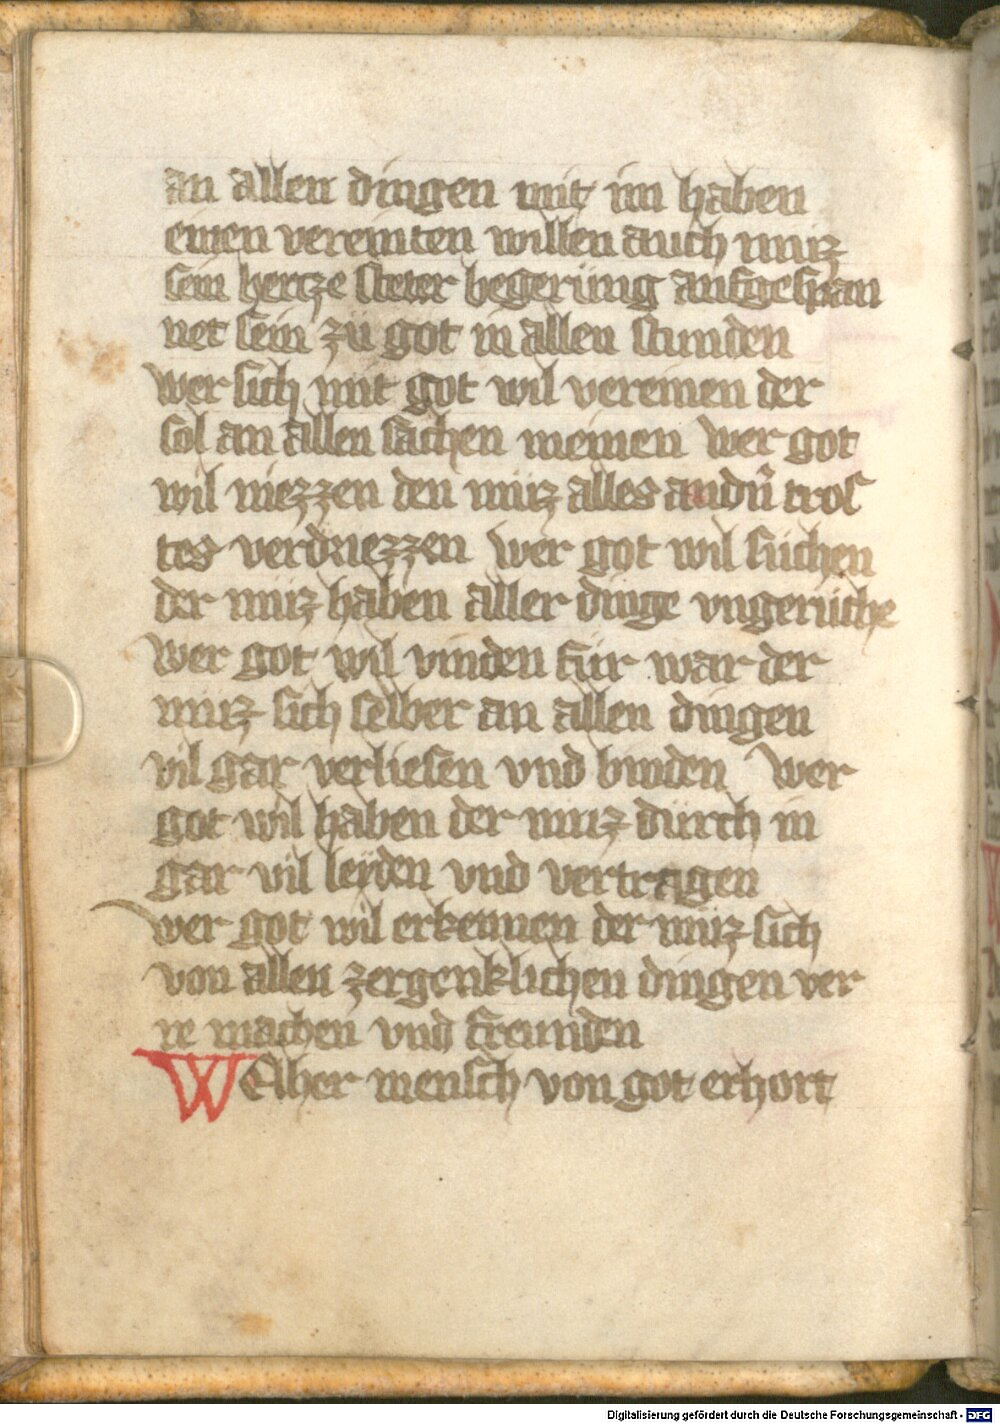 an allen dingen mit im haben
einen vereinten willen auch muͤz
sein hertze steter begerüng aufgespan
net sein zü got in allen stunden
wer sich mit got wil vereinen der
sol an allen sachen meinen wer got
wil niezzen den muͤz alles andn̄ tros
tes verdriezzen wer got wil süchen
der müz haben aller dinge vngerüche
wer got wil vinden für war der
müz sich selber an allen dingen
vil gar verliesen vnd binden wer
got wil haben der müz dürch in
gar vil leÿden vnd vertragen
wer got wil erkennen der müz sich
von allen zergenklichen dingen ver
re machen vnd freunden
WElher mensch von got erhort
Digitalisierung gefördert durch die Deutsche Forschungsgemeinschaft - DFG